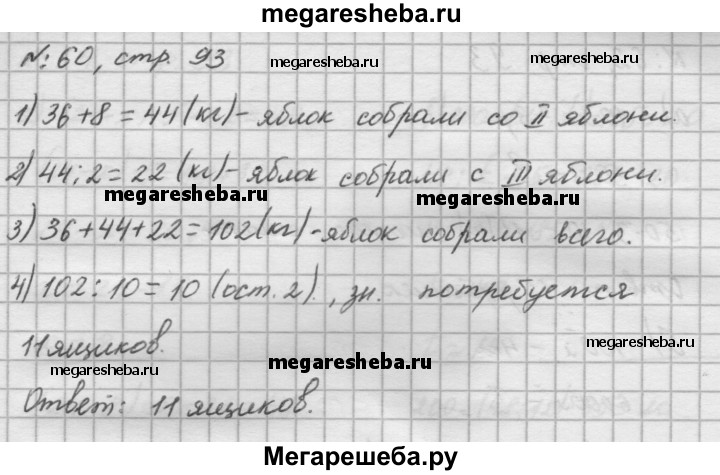 megaresheba.ru
№ 60, стр. 93
megaresheba.ru
megaresheba.ru
1) 36+8=44 (кг) - яблок собрали со II яблони.
2) 44:2=22 (кг) - яблок собрали с III яблони.
megaresheba.ru
megaresheba.ru
3) 36+44+22=102 (кг) - яблок собрали всего.
4) 102:10=10 (ост. 2), зн. потребуется
11 ящиков.
megaresheba.ru
megaresheba.ru
megaresheba.ru
Ответ: 11 ящиков.
Мегарешеба.ру